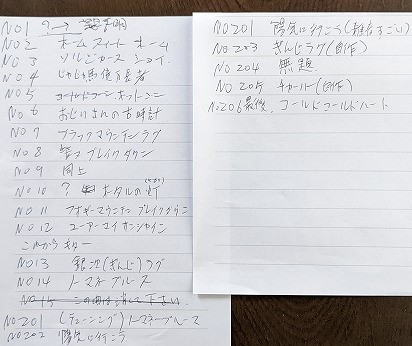 NO1 ?→ 黎明
NO2 ホームスイート ホーム
NO3 ソルジャース ジョイ
NO4 じゃじゃ馬億万長者
NO5 コールドコーン
NO6 おじいさんの古時計
NO7 ブラックマウンテンラグ
NO8 ブレイクダウン
NO9 同上
NO10 ? ホタルの灯
NO11 フォギーマウンテン ブレイクダウン
NO12 ユーアーマイサンシャイン
これからギター
NO13 銀次(ぎんじ)ラグ
NO14 トマネブルース
NO15 この曲は消して下さい
NO201 (チューニング)トマネーブルース
NO202 陽気に行こう
NO201 陽気に行こう(雑音すごい)
NO203 ぎんじラグ(自作)
NO204 無題
NO205 チャーハン(自作)
NO206最後、コールドコールドハート